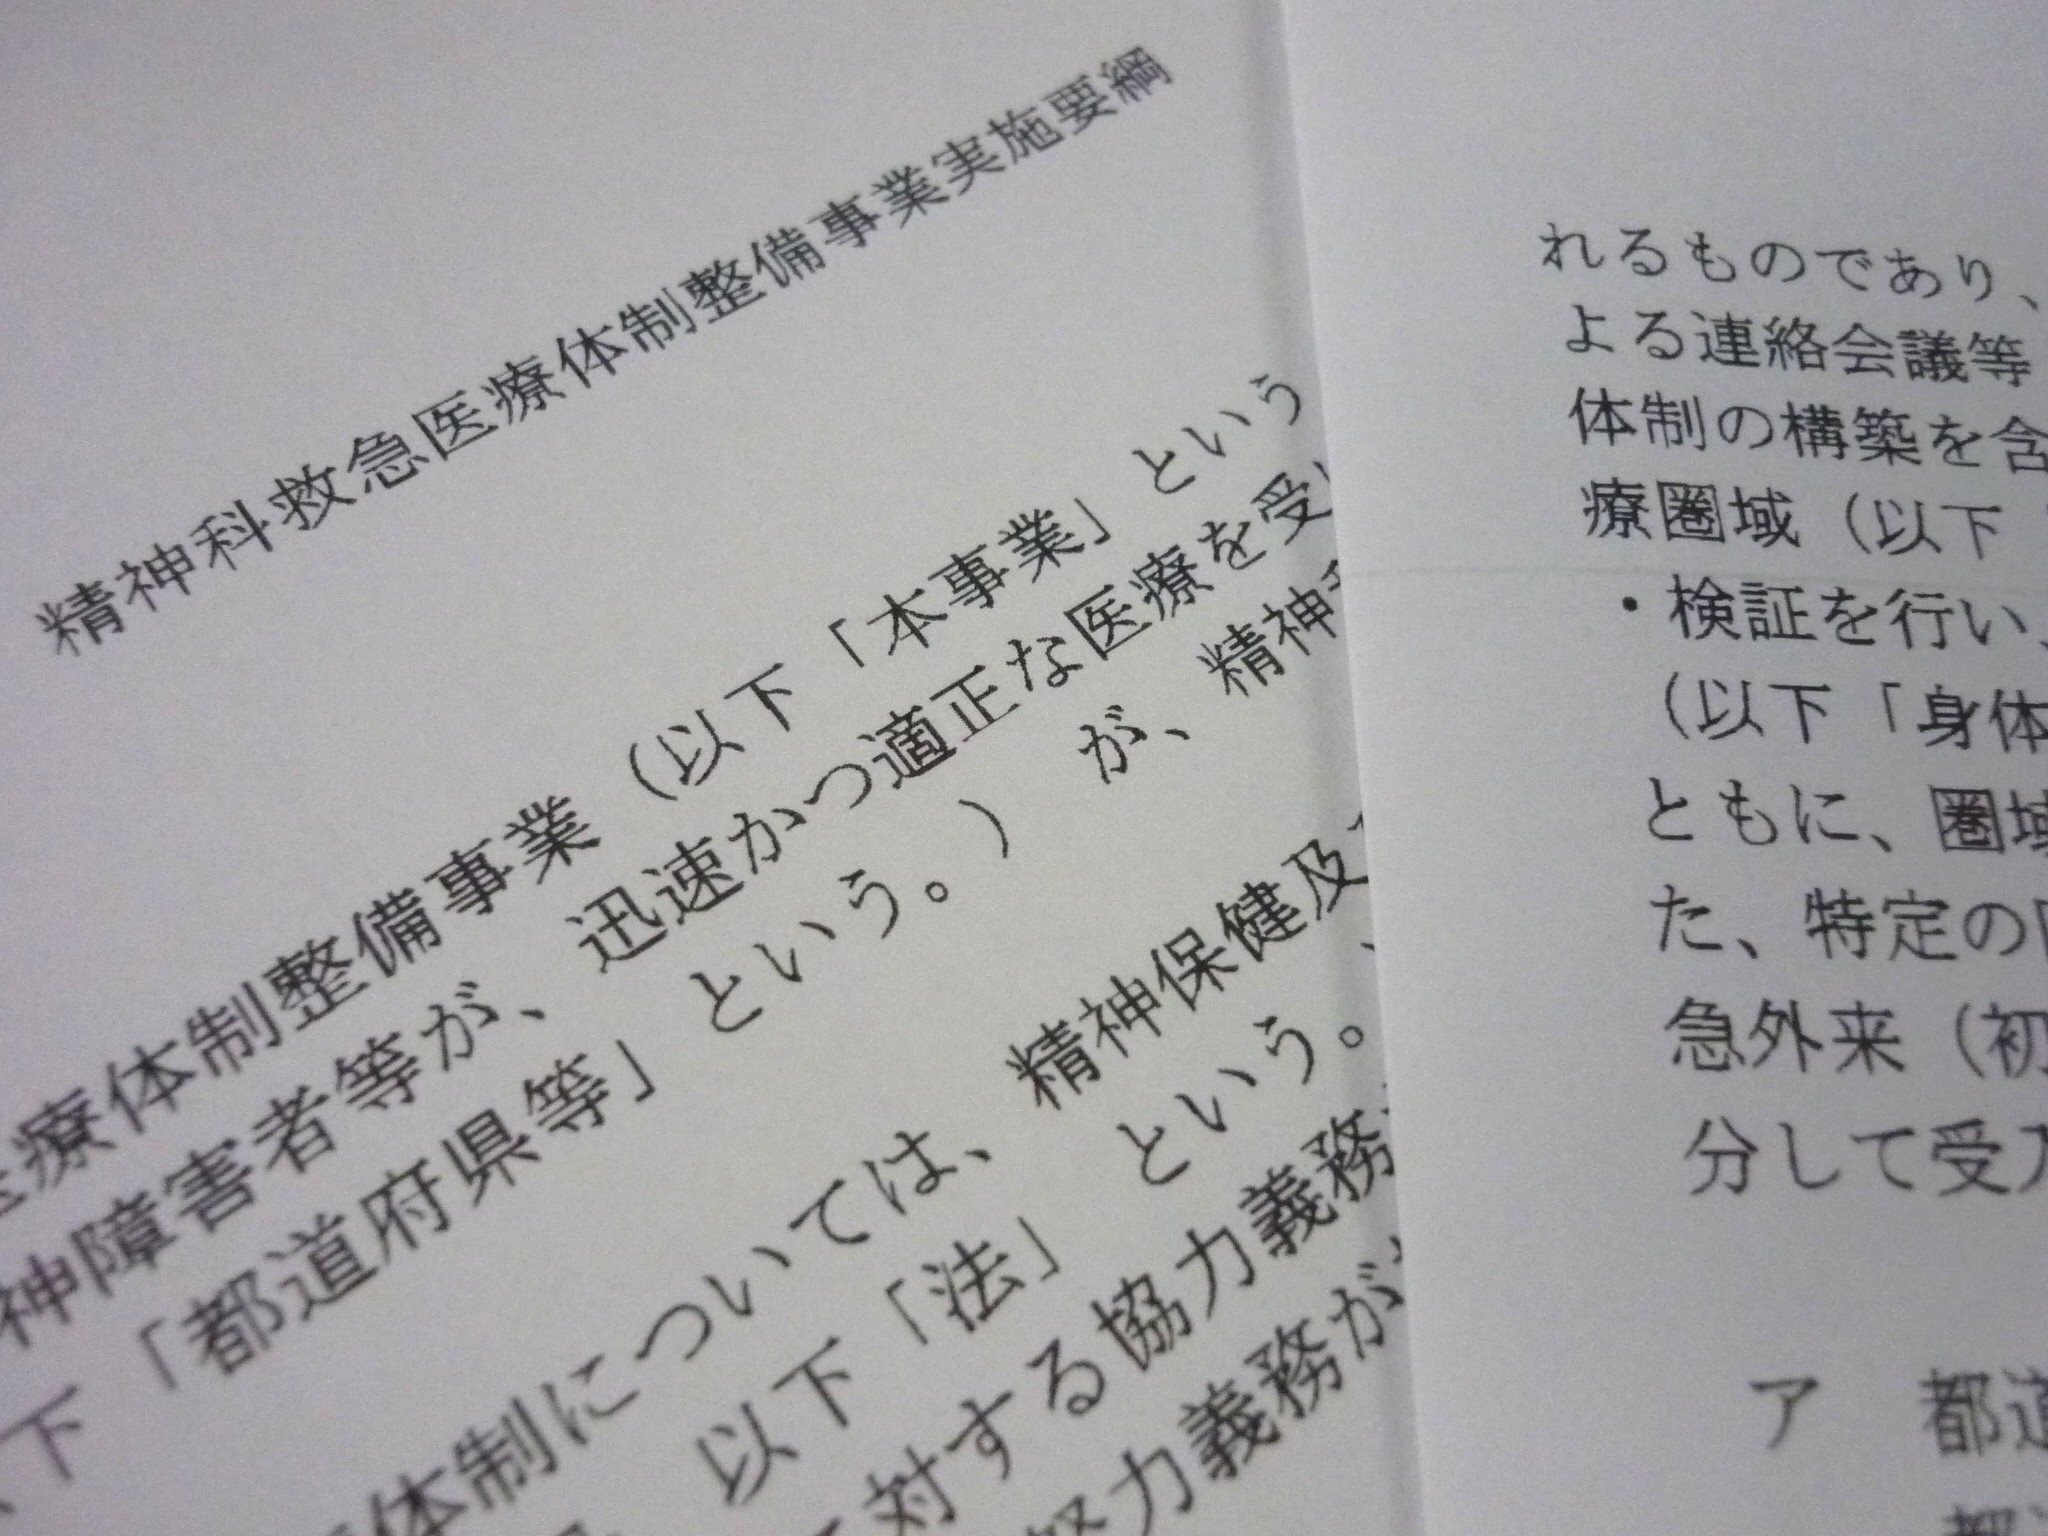 精神科救急医療体制整備事業実施要綱
療体制整備事業（以下「本事業」という
神障害者等が、迅速かつ適正な医療を受
下「都道府県等」という。）が、精神
体制については、精神保健及
以下「法」という。
対する協力義務
努力義務が
れるものであり、
よる連絡会議等
体制の構築を含
療圏域（以下
・検証を行い、
（以下「身体
ともに、圏域
た、特定の
急外来（初
分して受入
ア 都道
都道